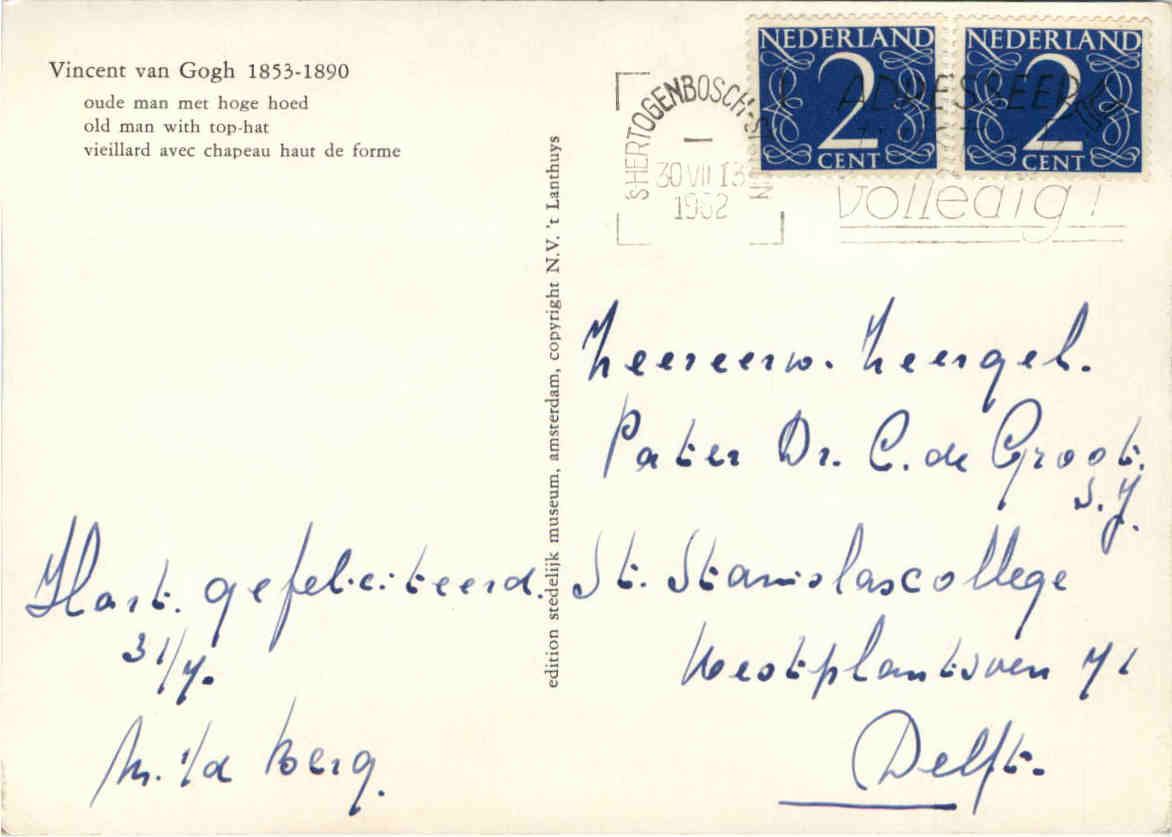 Vincent van Gogh 1853-1890
oude man met hoge hoed
old man with top-hat
vieillard avec chapeau haut de forme
edition stedelijk museum, amsterdam, copyright N.V. 't Lanthuys
NEDERLAND
2
CENT
NEDERLAND
2
CENT
'S HERTOGENBOSCH-ST
30 VII 13
1962
ADRESSEER
volledig!
Zeereerw. Zeergel.
Pater Dr. C. de Groot.
S.J.
St. Stanislascollege
Westplantsoen 71
Delft.
Hart. gefeliciteerd.
31/7.
M. v/d Berg.